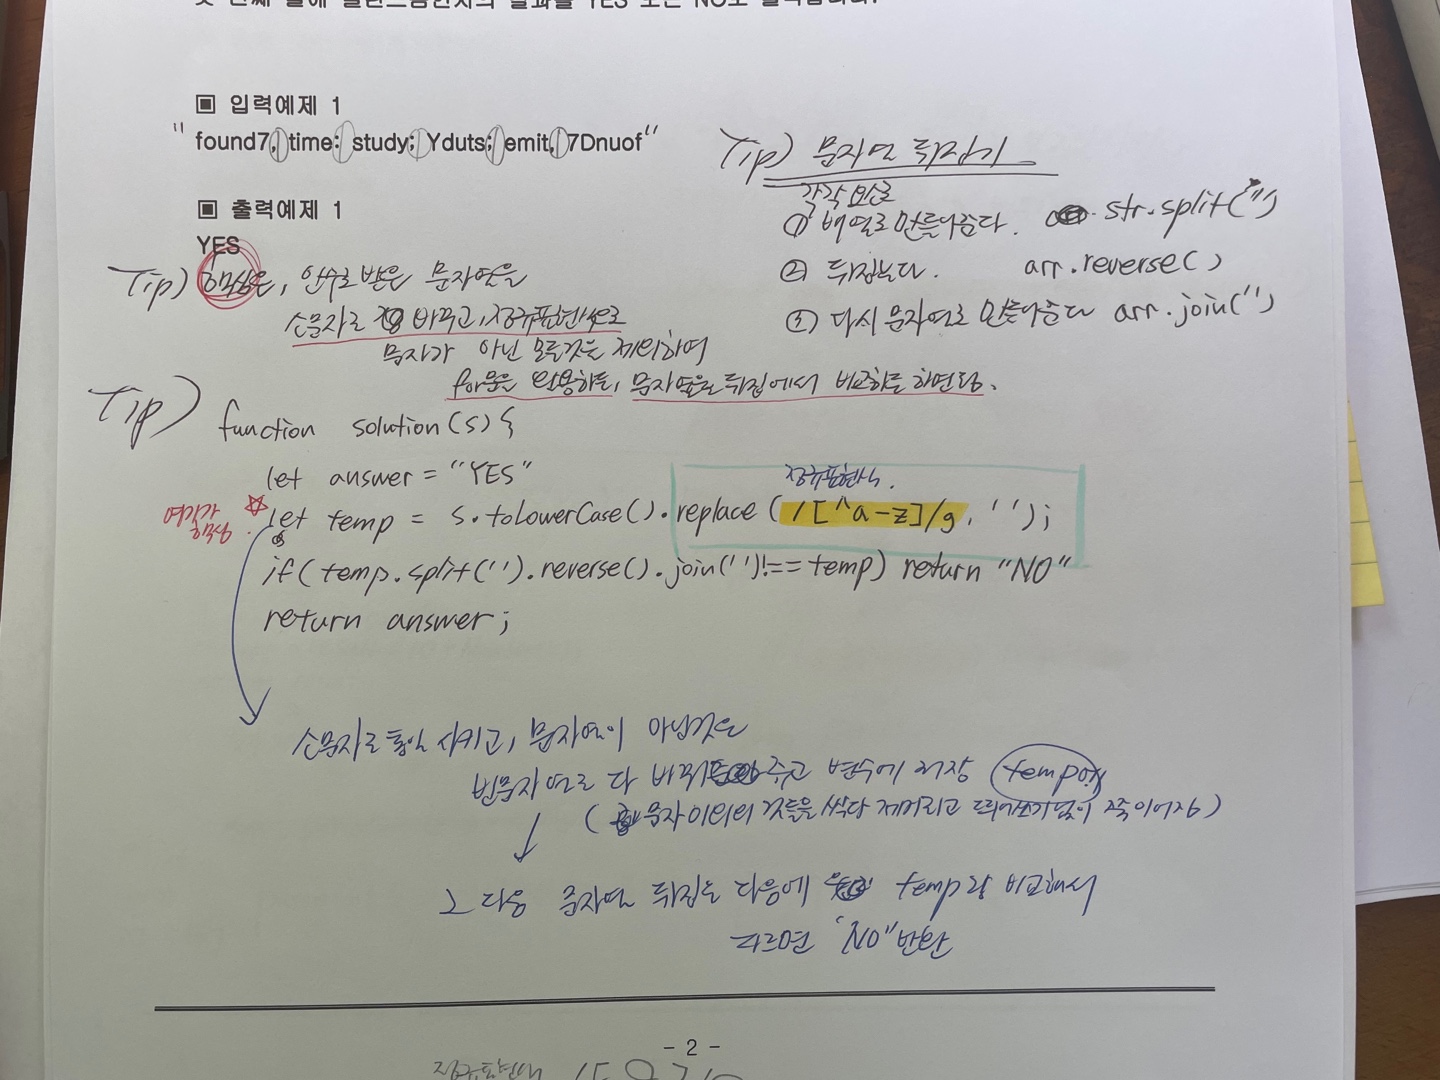 첫 번째 줄에 팰린드롬인지의 결과를 YES 또는 NO로 출력합니다.
▣ 입력예제 1
"found7, time: study; Yduts; emit, 7Dnuof"
▣ 출력예제 1
YES
Tip) 문자열 뒤집기
각각 요소로
① 배열로 만들어준다. str.split('')
② 뒤집는다. arr.reverse()
③ 다시 문자열로 만들어준다 arr.join('')
Tip) 핵심은, 인수로 받은 문자열을
소문자로 바꾸고, 정규표현식으로
문자가 아닌 모든것은 제외하여
for문을 활용하든, 문자열을 뒤집에서 비교하든 하면됨.
Tip)
function solution(s){
let answer = "YES"
정규표현식.
여기가 핵심.
let temp = s.toLowerCase().replace(/[^a-z]/g, '');
if(temp.split('').reverse().join('')!== temp) return "NO"
return answer;
소문자로 통일 시키고, 문자열이 아닌것은
빈문자열로 다 바꿔 주고 변수에 저장 temp에
(문자 이외의 것들을 싹다 제거하고 띄어쓰기없이 쭉 이어짐)
그 다음 문자열 뒤집은 다음에 temp랑 비교해서
다르면 "NO" 반환
- 2 -
정규표현식